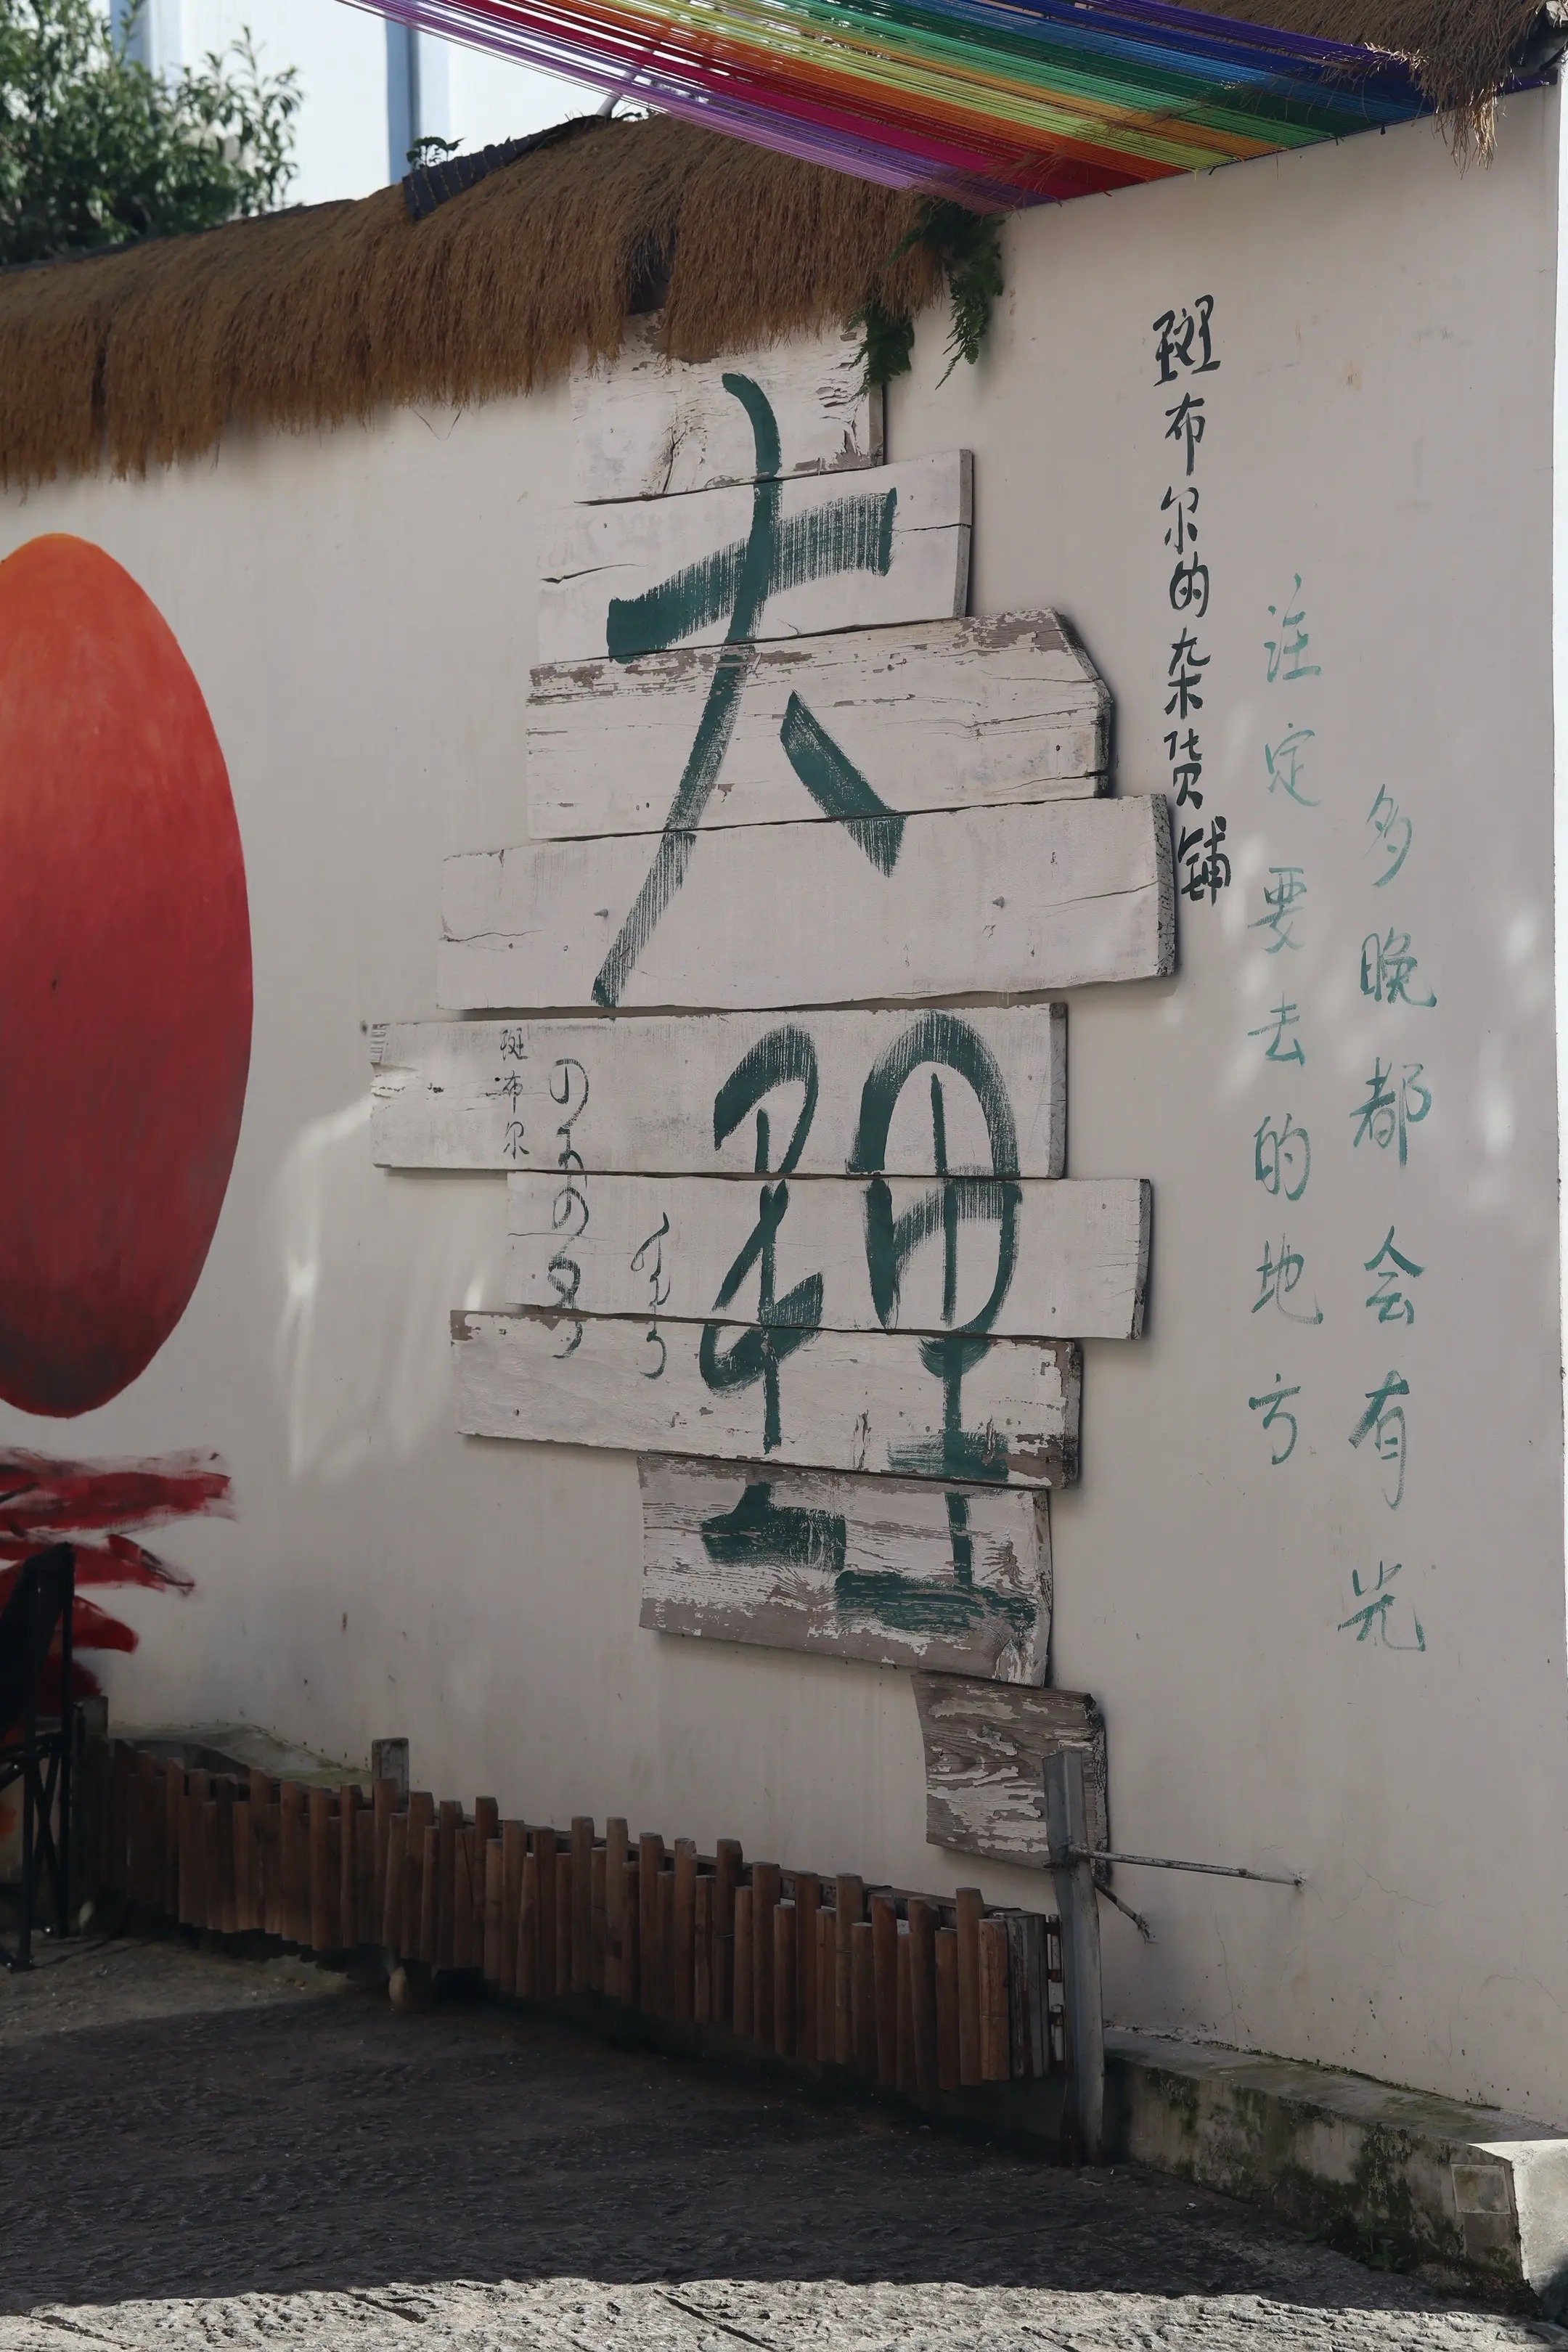 大理
斑布尔的杂货铺
注定要去的地方
多晚都会有光
斑布尔